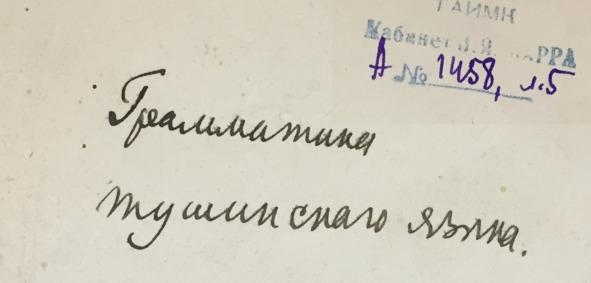 ГАИМК
Кабинет Н.Я. МАРРА
А № 1458, л.5
Грамматика
тушинскаго языка.